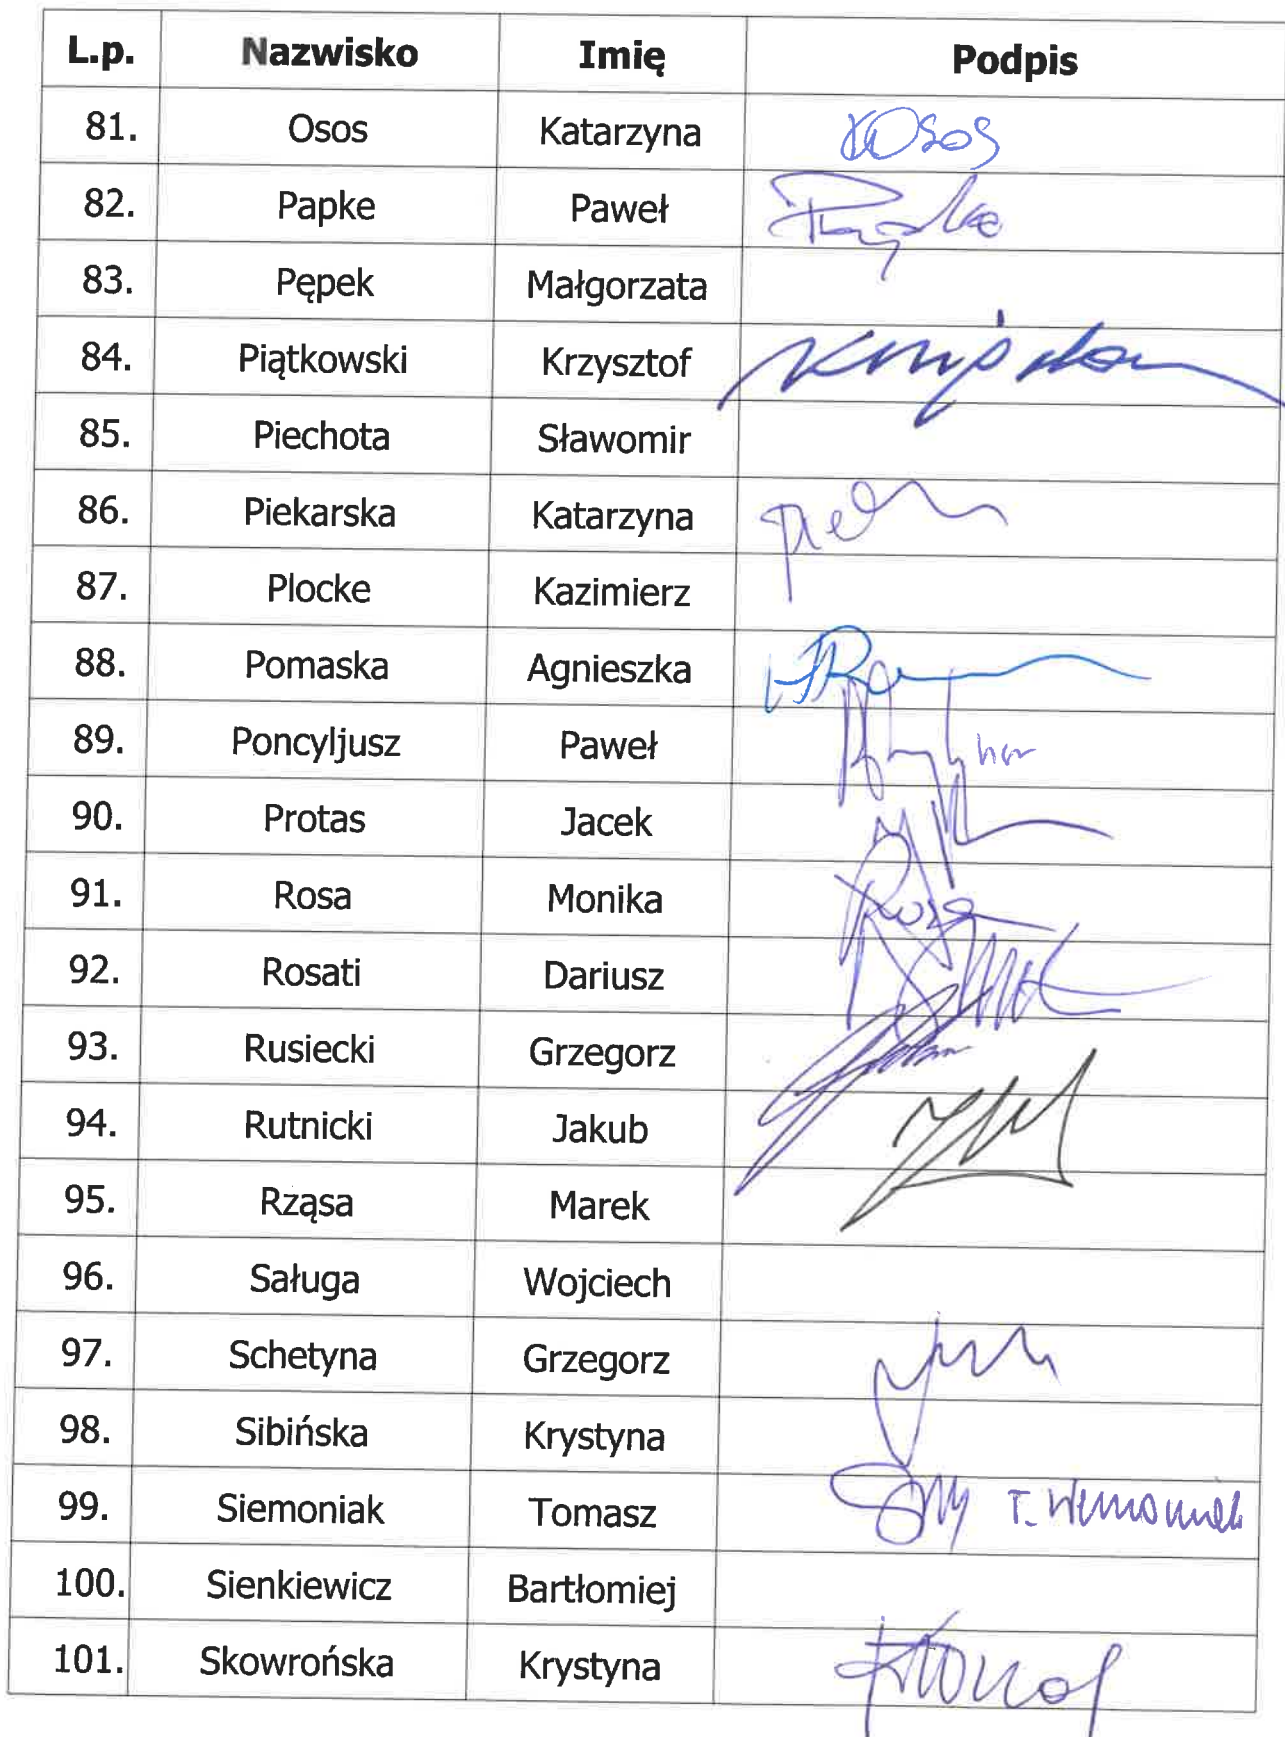 L.p. Nazwisko Imię Podpis
81. Osos Katarzyna KOsos
82. Papke Paweł Papke
83. Pępek Małgorzata
84. Piątkowski Krzysztof
85. Piechota Sławomir
86. Piekarska Katarzyna
87. Plocke Kazimierz
88. Pomaska Agnieszka
89. Poncyljusz Paweł
90. Protas Jacek
91. Rosa Monika Rosa
92. Rosati Dariusz
93. Rusiecki Grzegorz
94. Rutnicki Jakub
95. Rząsa Marek
96. Saługa Wojciech
97. Schetyna Grzegorz
98. Sibińska Krystyna
99. Siemoniak Tomasz T. Siemoniak
100. Sienkiewicz Bartłomiej
101. Skowrońska Krystyna